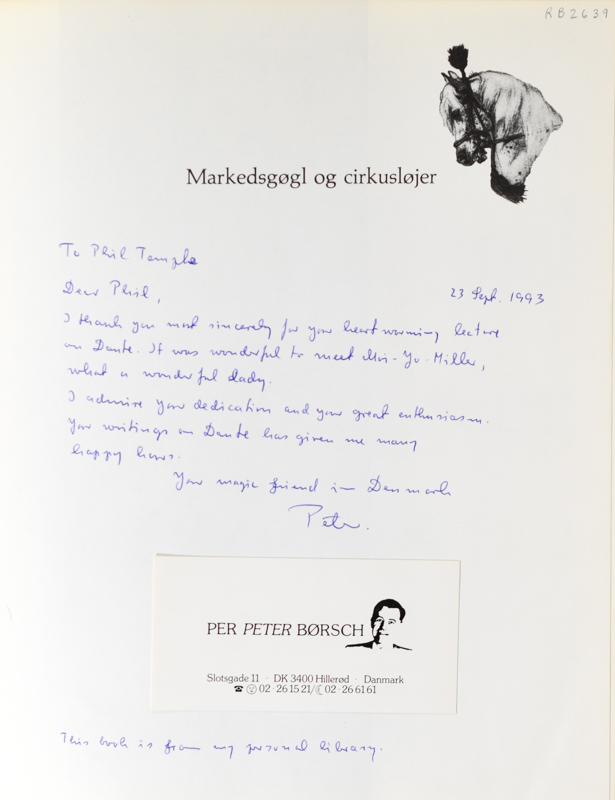 RB2639
Markedsgøgl og cirkusløjer
To Phil Temple
Dear Phil,
23 Sept. 1993
I thank you most sincerely for your heartwarming lecture
on Dante. It was wonderful to meet Moi-Yo-Miller,
what a wonderful Lady.
I admire your dedication and your great enthusiasm.
Your writings on Dante has given me many
happy hours.
Your magic friend in Denmark
Peter.
PER PETER BØRSCH
Slotsgade 11 · DK 3400 Hillerød · Danmark
☎ 02·26 15 21/ 02·26 61 61
This book is from my personal library.